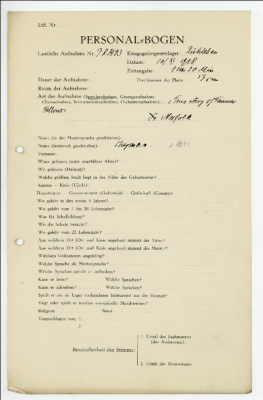 Lfd. Nr.
PERSONAL-BOGEN
Lautliche Aufnahme Nr.: Kriegsgefangenenlager: Ruhleben
Datum:
Zeitangabe:
Dauer der Aufnahme: Durchmesser der Platte: 17 cm
Raum der Aufnahme:
Art der Aufnahme (Sprechaufnahme, Gesangsaufnahme,
Choraufnahme, Instrumentenaufnahme, Orchesteraufnahme): True story of
Norfolk
Name (in der Muttersprache geschrieben):
Name (lateinisch geschrieben): Chapman
Vorname:
Wann geboren (oder ungefähres Alter)?
Wo geboren (Heimat)?
Welche größere Stadt liegt in der Nähe des Geburtsortes?
Kanton — Kreis (Ujedz):
Department — Gouvernement (Gubernija) — Grafschaft (County):
Wo gelebt in den ersten 6 Jahren?
Wo gelebt vom 7. bis 20. Lebensjahr?
Was für Schulbildung?
Wo die Schule besucht?
Wo gelebt vom 20. Lebensjahr?
Aus welchem Ort (Ort und Kreis angeben) stammt der Vater?
Aus welchem Ort (Ort und Kreis angeben) stammt die Mutter?
Welchem Volksstamm angehörig?
Welche Sprache als Muttersprache?
Welche Sprachen spricht er außerdem?
Kann er lesen? Welche Sprachen?
Kann er schreiben? Welche Sprachen?
Spielt er ein im Lager vorhandenes Instrument aus der Heimat?
Singt oder spielt er moderne europäische Musikweisen?
Religion: Beruf:
Vorgeschlagen von: 1.
2.
Beschaffenheit der Stimme:
1. Urteil des Fachmannes
(des Assistenten):
2. Urteil des Kommissars: